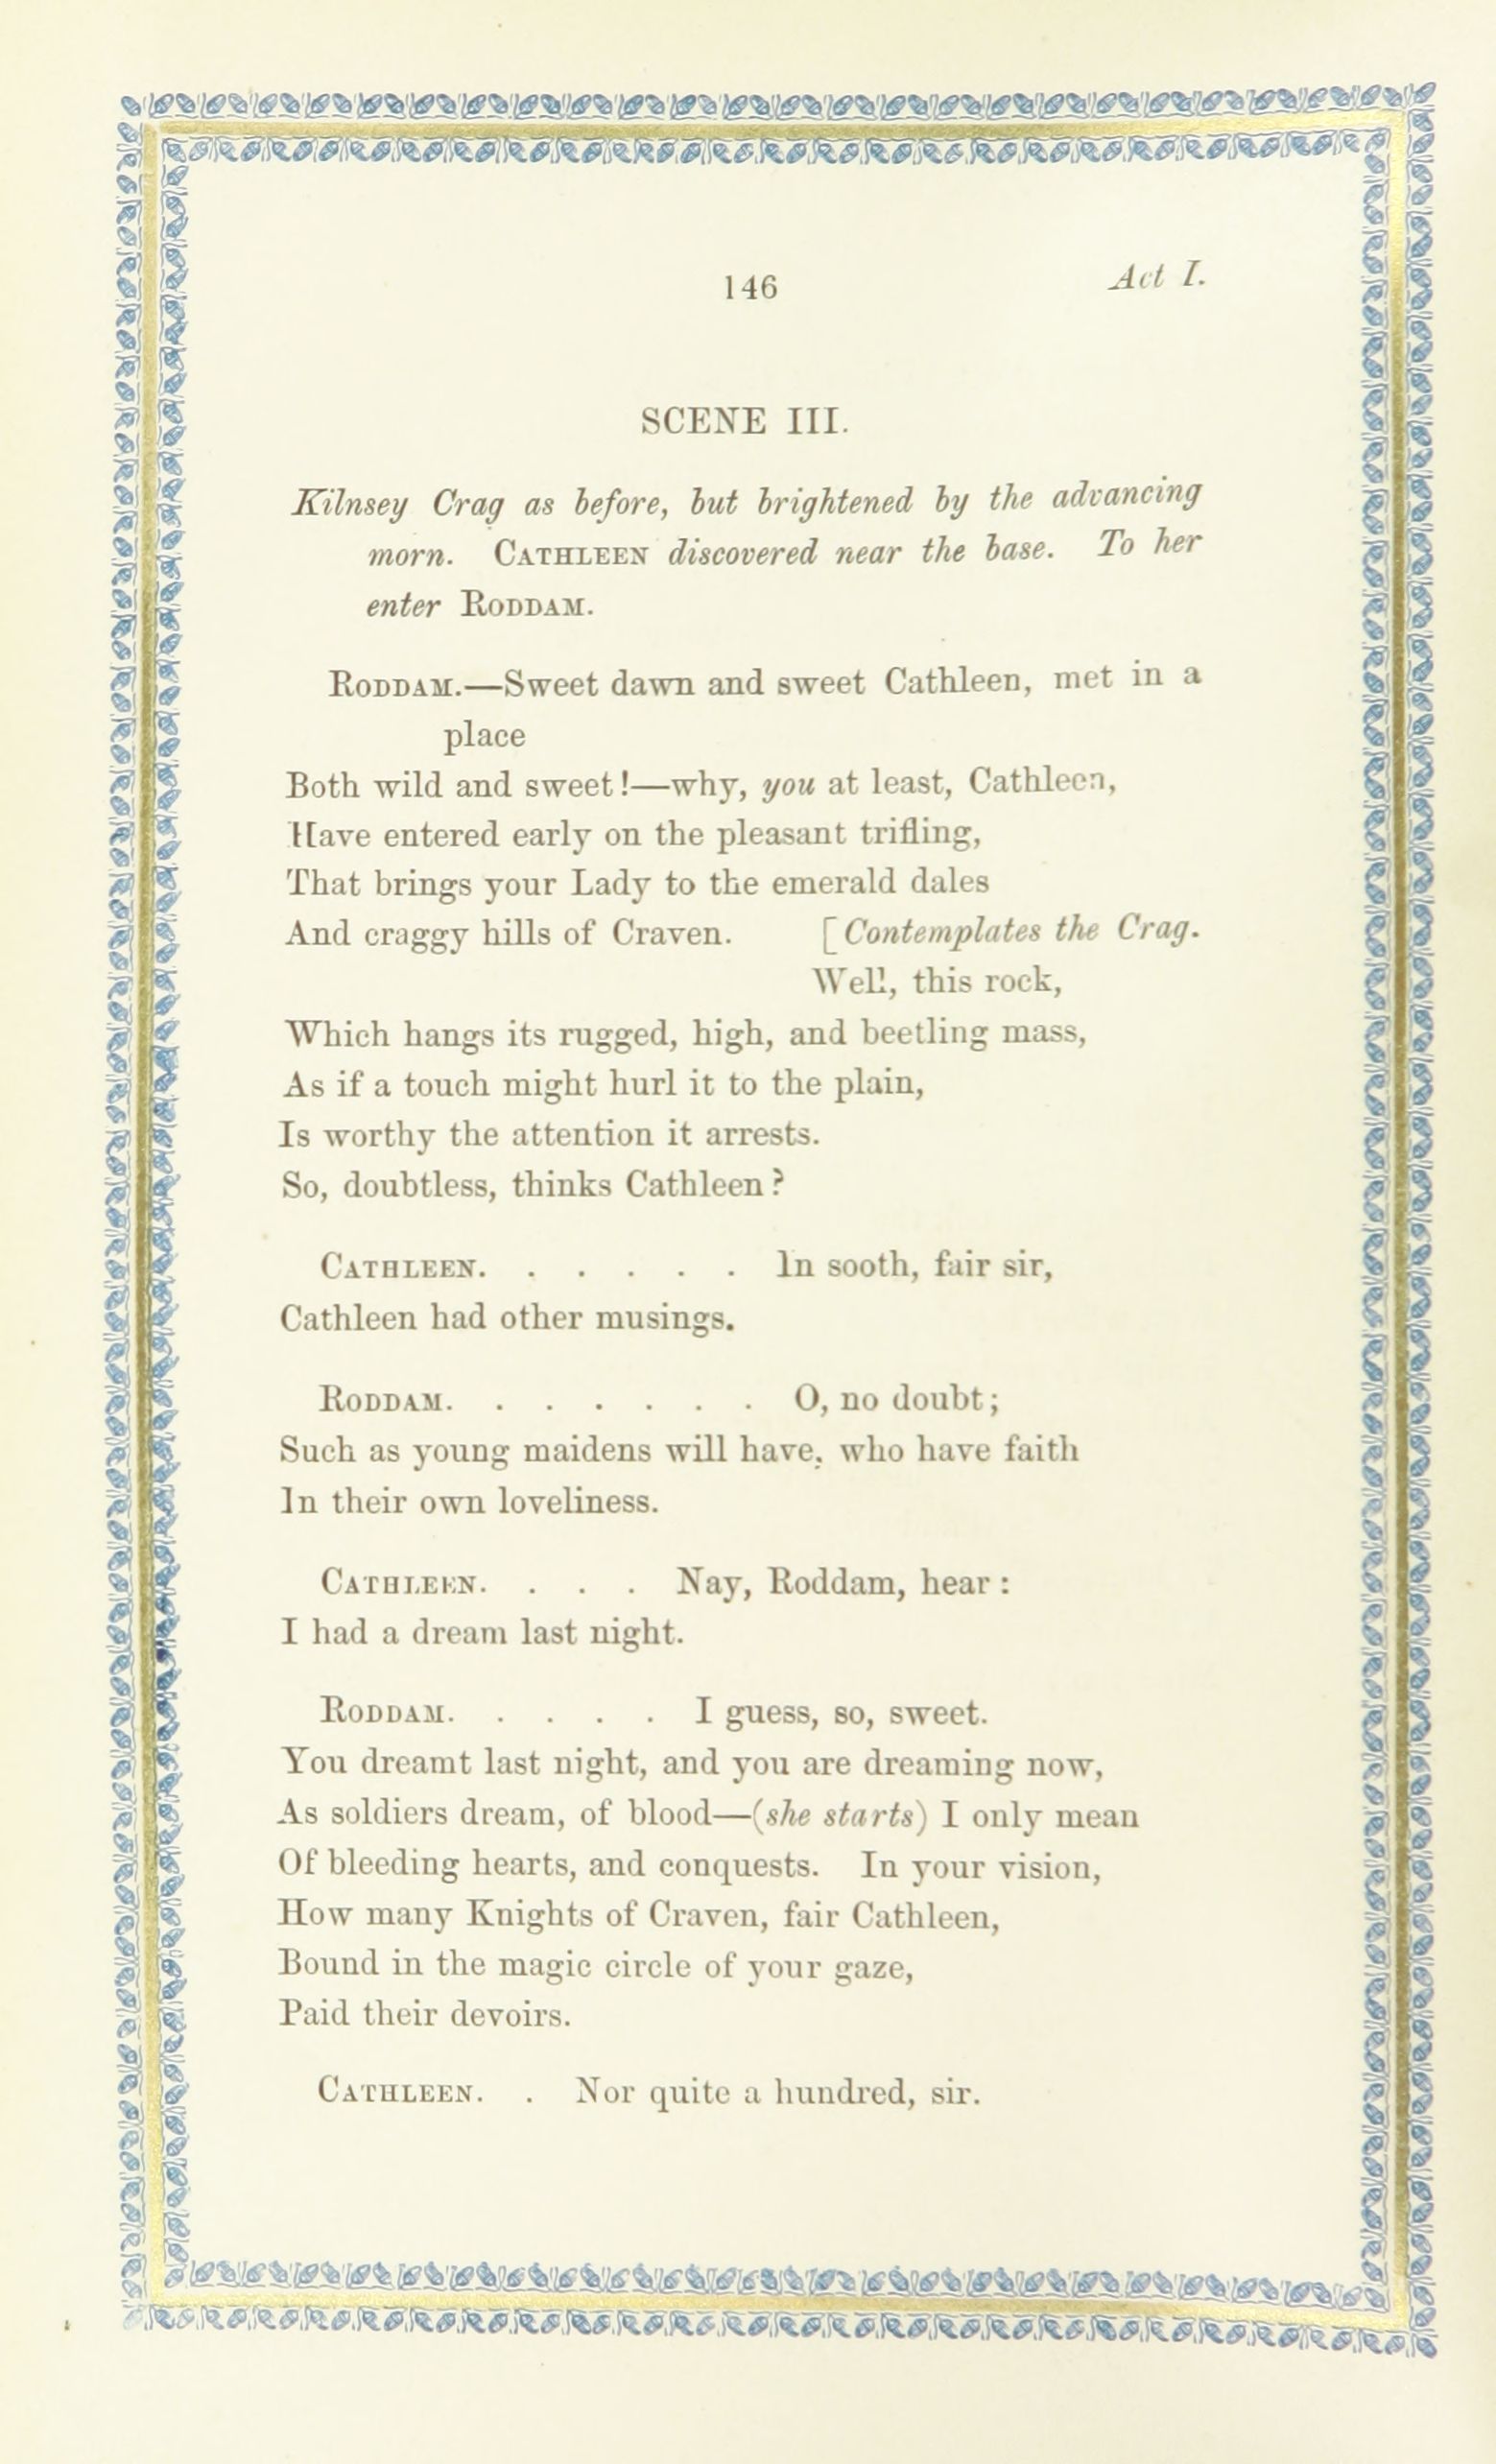 146
Act I.
SCENE III.
Kilnsey Crag as before, but brightened by the advancing
morn. CATHLEEN discovered near the base. To her
enter RODDAM.
RODDAM.—Sweet dawn and sweet Cathleen, met in a
place
Both wild and sweet!—why, you at least, Cathleen,
Have entered early on the pleasant trifling,
That brings your Lady to the emerald dales
And craggy hills of Craven. [Contemplates the Crag.
Well, this rock,
Which hangs its rugged, high, and beetling mass,
As if a touch might hurl it to the plain,
Is worthy the attention it arrests.
So, doubtless, thinks Cathleen?
CATHLEEN. . . . . . In sooth, fair sir,
Cathleen had other musings.
RODDAM. . . . . . . O, no doubt;
Such as young maidens will have, who have faith
In their own loveliness.
CATHLEEN. . . . Nay, Roddam, hear:
I had a dream last night.
RODDAM. . . . . I guess, so, sweet.
You dreamt last night, and you are dreaming now,
As soldiers dream, of blood—(she starts) I only mean
Of bleeding hearts, and conquests. In your vision,
How many Knights of Craven, fair Cathleen,
Bound in the magic circle of your gaze,
Paid their devoirs.
CATHLEEN. . Nor quite a hundred, sir.